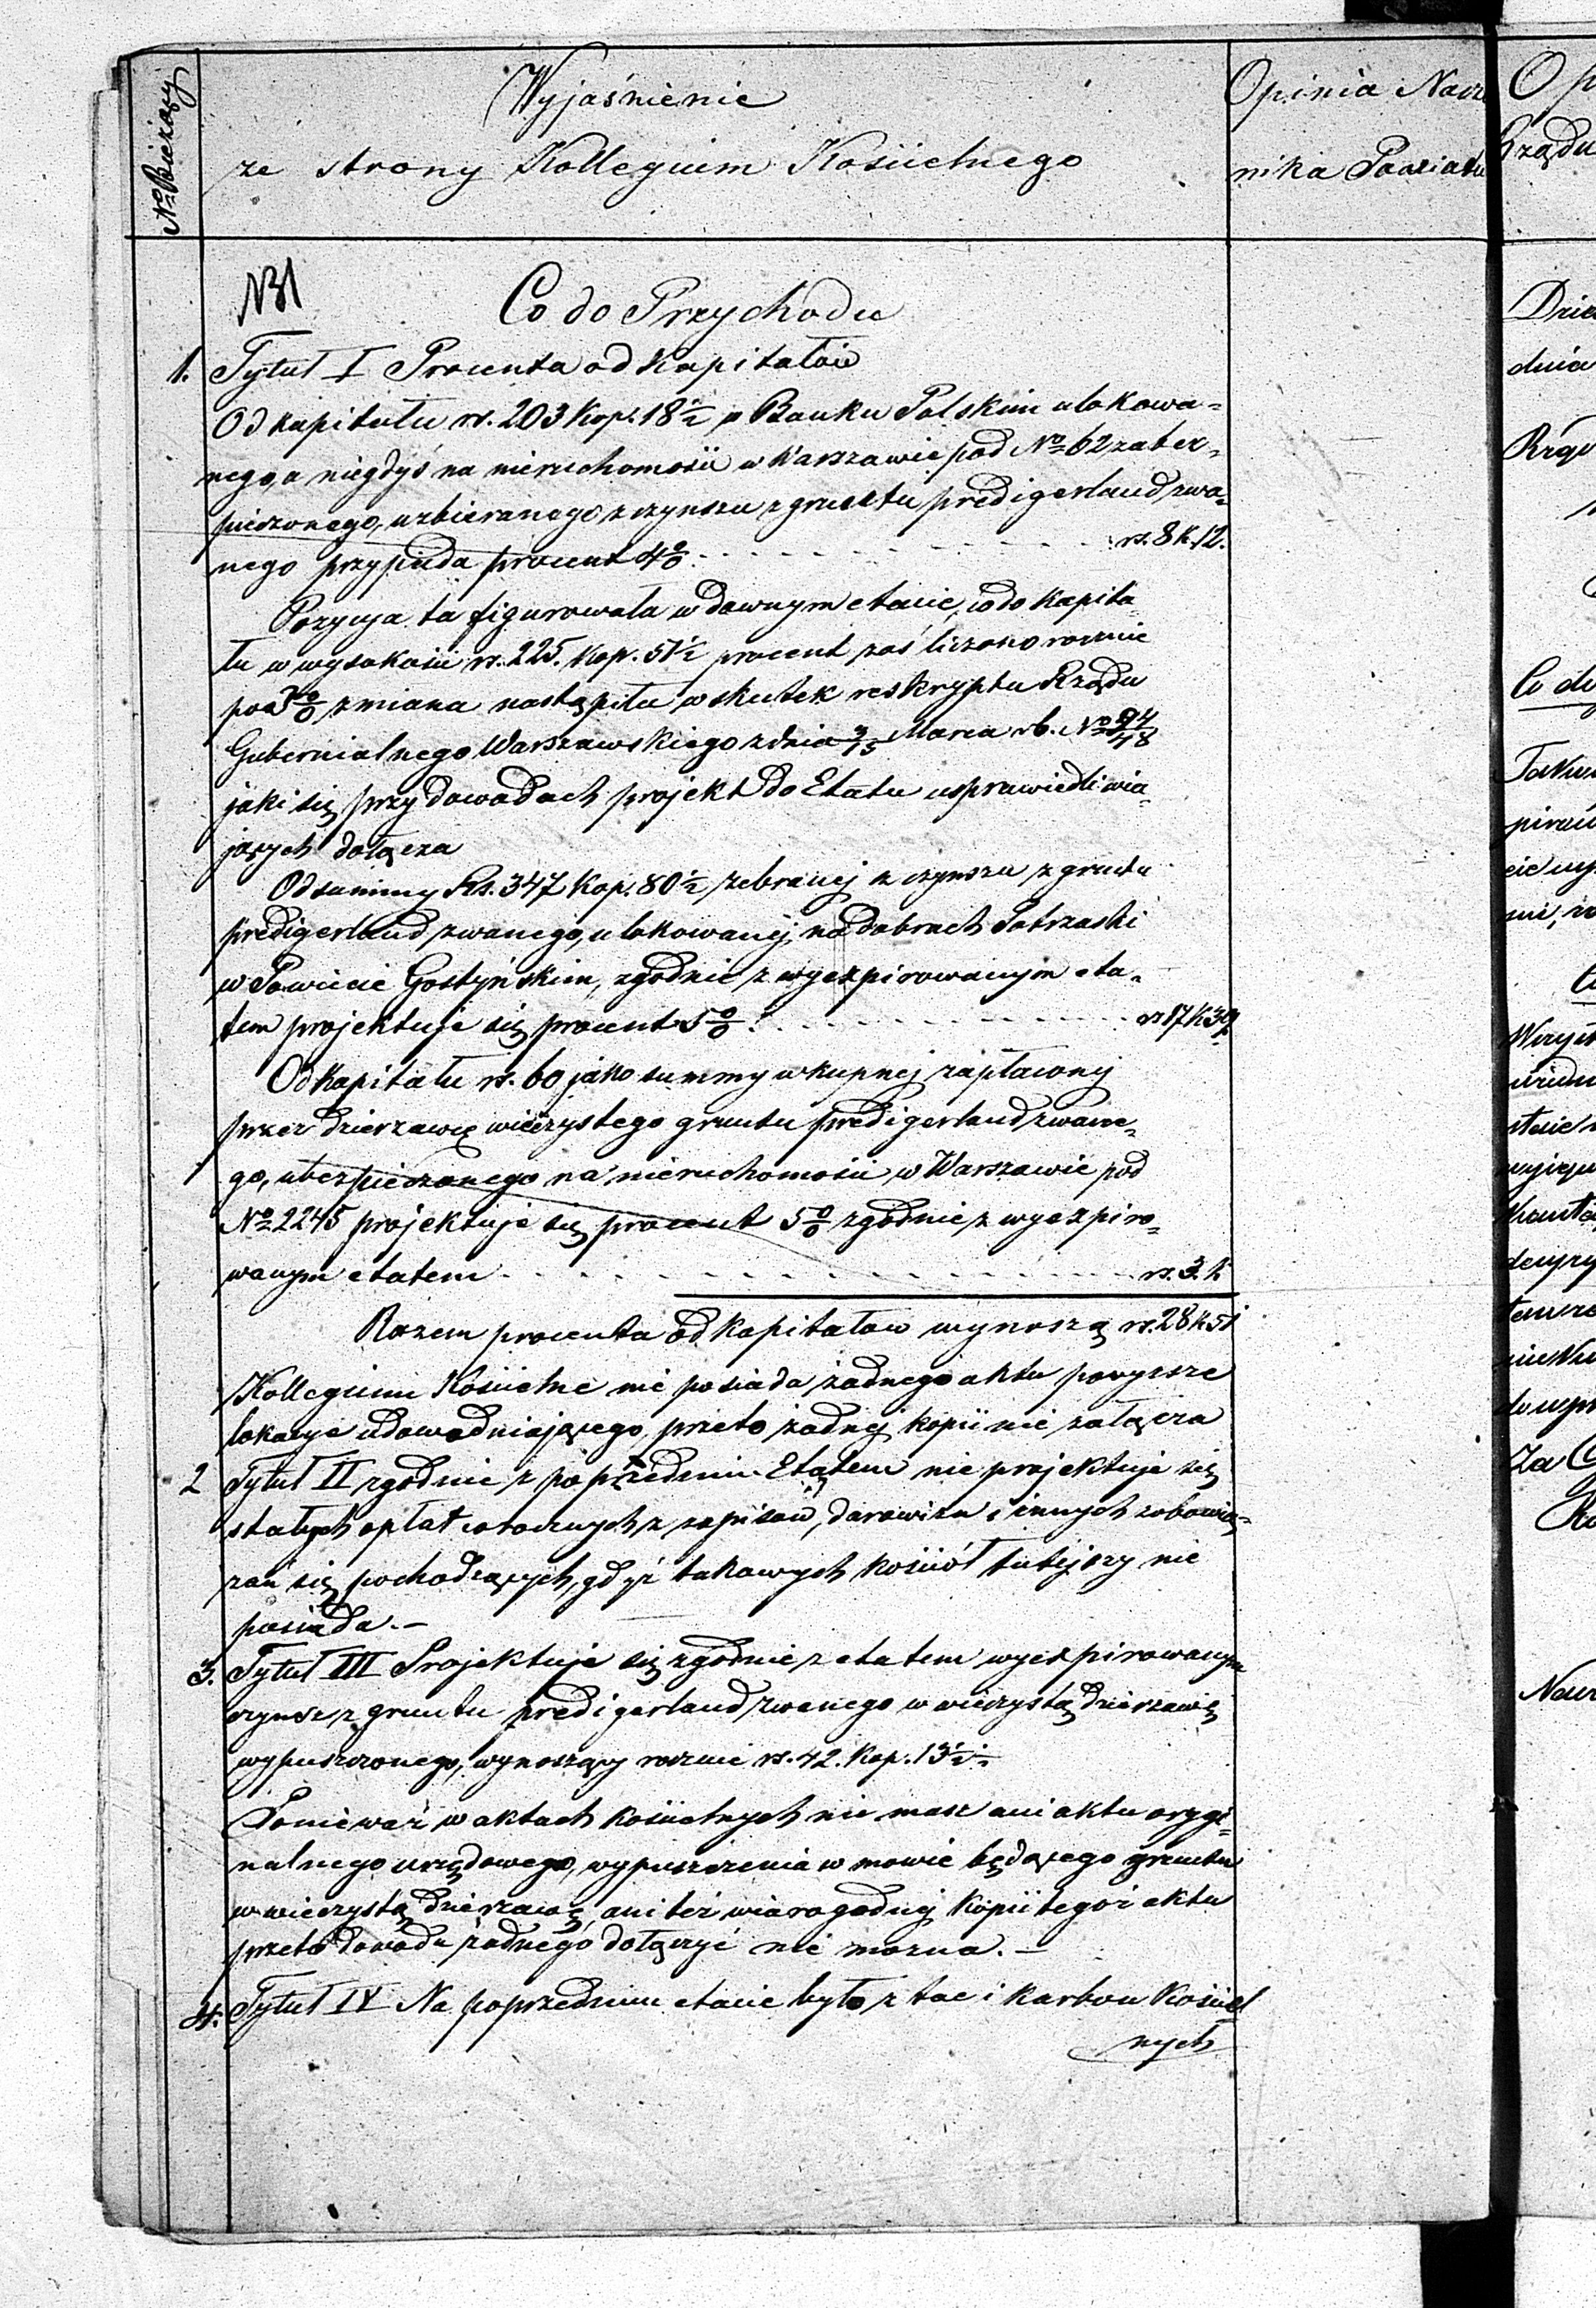 No Bieżący
Wyjaśnienie
ze strony Kollegium Kościelnego
Opinia Nacz
nika Powiatu
Op
Rządu
N 1
Co do Przychodu
1. Tytuł I Procenta od Kapitałów
Od kapitału rs. 203 Kop. 18½ w Banku Polskim ulokowa=
nego, a niegdyś na nieruchomości w Warszawie pod No 62 zabez=
pieczonego, uzbieranego z czynszu z gruntu predigerland zwa=
nego przypada procent 4% . . . . . . rs. 8 k. 12.
Pozycya ta figurowała w dawnym etacie, co do kapita=
łu w wysokości rs. 225. Kop. 51½ procent zaś liczono rocznie
po 5% zmiana nastąpiła w skutek reskryptu Rządu
Gubernialnego Warszawskiego z dnia 3/15 Marca rb. No
jaki się przy dowodach projekt do Etatu usprawiedliwia=
jących dołącza
Od summy Rs. 347 Kop. 80½ zebranej z czynszu z gruntu
predigerland zwanego, ulokowanej na dobrach Potrzaski
w Powiecie Gostyńskim, zgodnie z wyexpirowanym eta=
tem projektuje się procent 5% . . . . . . rs 17 k 39
Od Kapitału rs. 60 jako summy wkupnej zapłacony
przez dzierzawcę wieczystego gruntu predigerland zwane=
go, ubezpieczonego na nieruchomości w Warszawie pod
No 2245 projektuje się procent 5% zgodnie z wyexpiro=
wanym etatem . . . . . . rs. 3. k
Razem procenta od Kapitałow wynoszą rs. 28 k 51
Kollegium Kościelne nie posiada żadnego aktu powyzsze
lokacye udowodniającego, przeto żadnej kopii nie załącza
2 Tytuł II zgodnie z poprzednim Etatem nie projektuje się
stałych opłat corocznych z zapisów, darowizn i innych zobowią=
zań się pochodzących, gdyż takowych kościół tutejszy nie
posiada. –
3. Tytuł III Projektuje się zgodnie z etatem wyexpirowanym
czynsz z gruntu predigerland zwanego w wieczystą dzierzawę
wypuszczonego, wynoszący rocznie rs. 42. Kop. 13½
Ponieważ w aktach kościelnych nie masz ani aktu orygi=
nalnego urzędowego, wypuszczenia w mowie będącego gruntu
w wieczystą dzierzawę, ani też wiarogodnej kopii tegoż aktu
przeto dowodu żadnego dołączyć nie mozna. –
4. Tytuł IV Na poprzednim etacie było z tac i karbon Kościel
nych